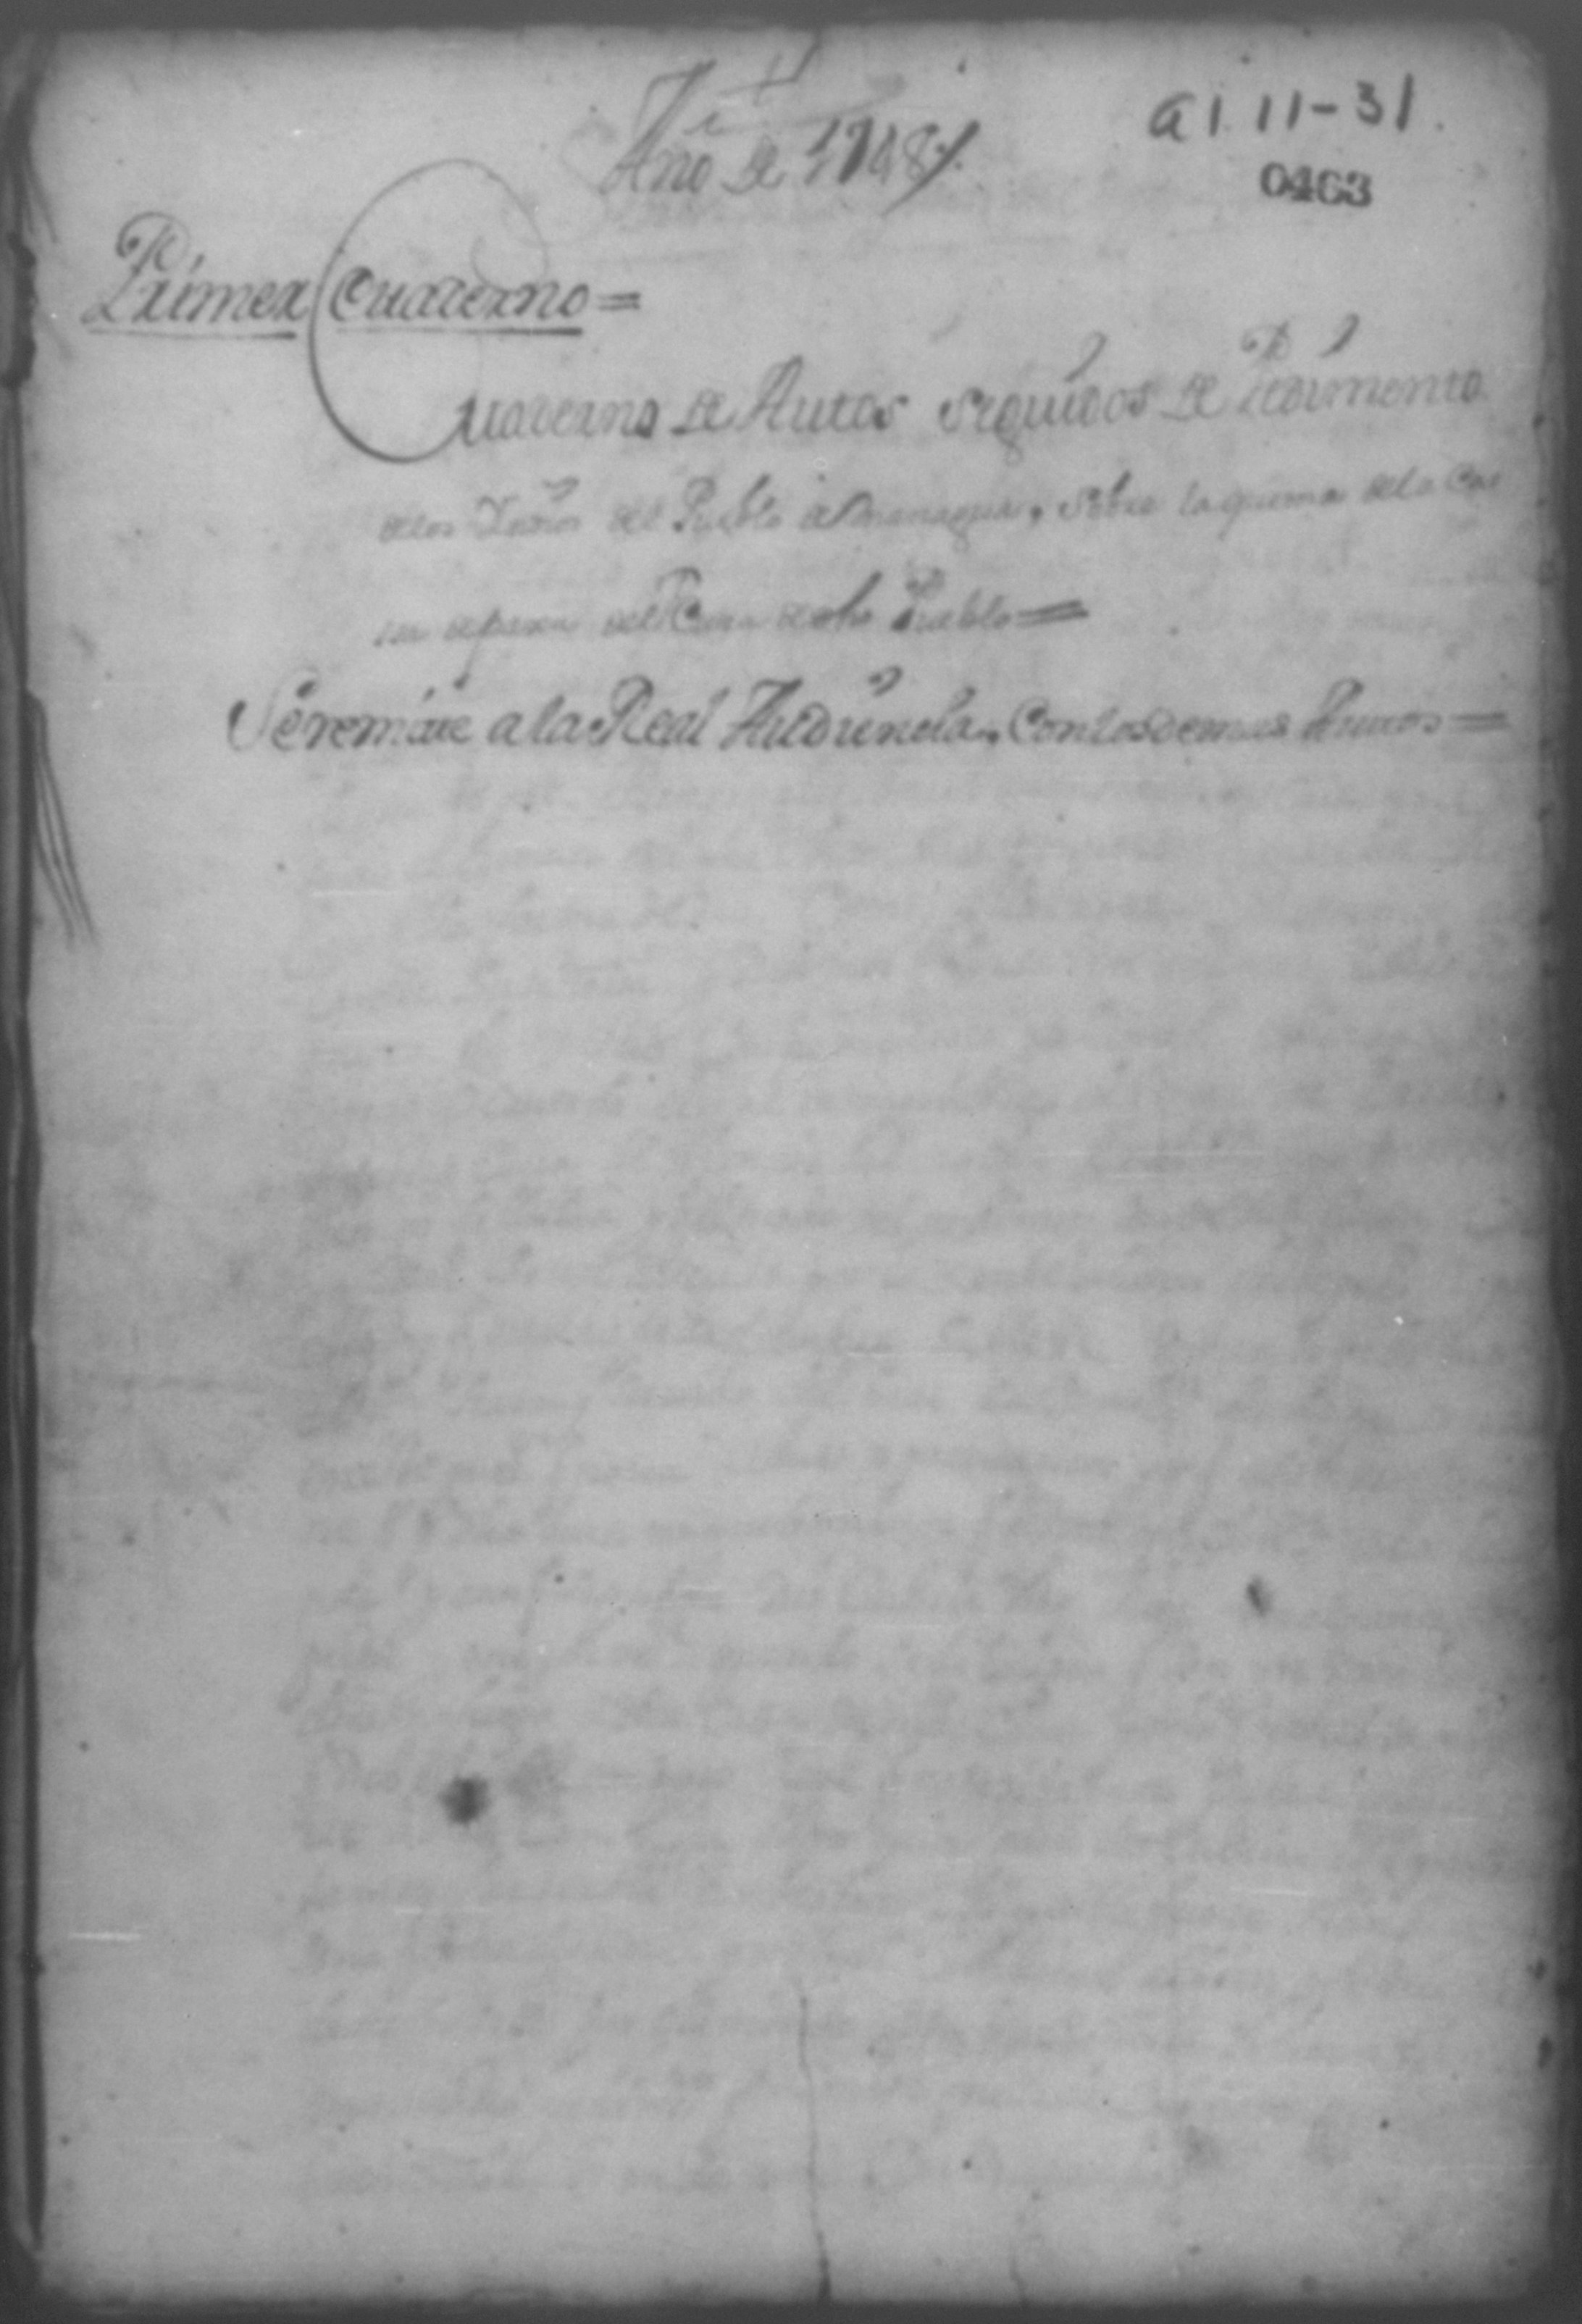 a1. 11-31.
0463
Año de 1748
Primer Cuaderno =
Cuaderno de Autos seguidos de Pedimento
delos Indios del Pueblo de Managua, sobre la quema dela Ca
sa de paxa del Cura de dho Pueblo =
Se remite a la Real Audiencia, con los demas Autos =